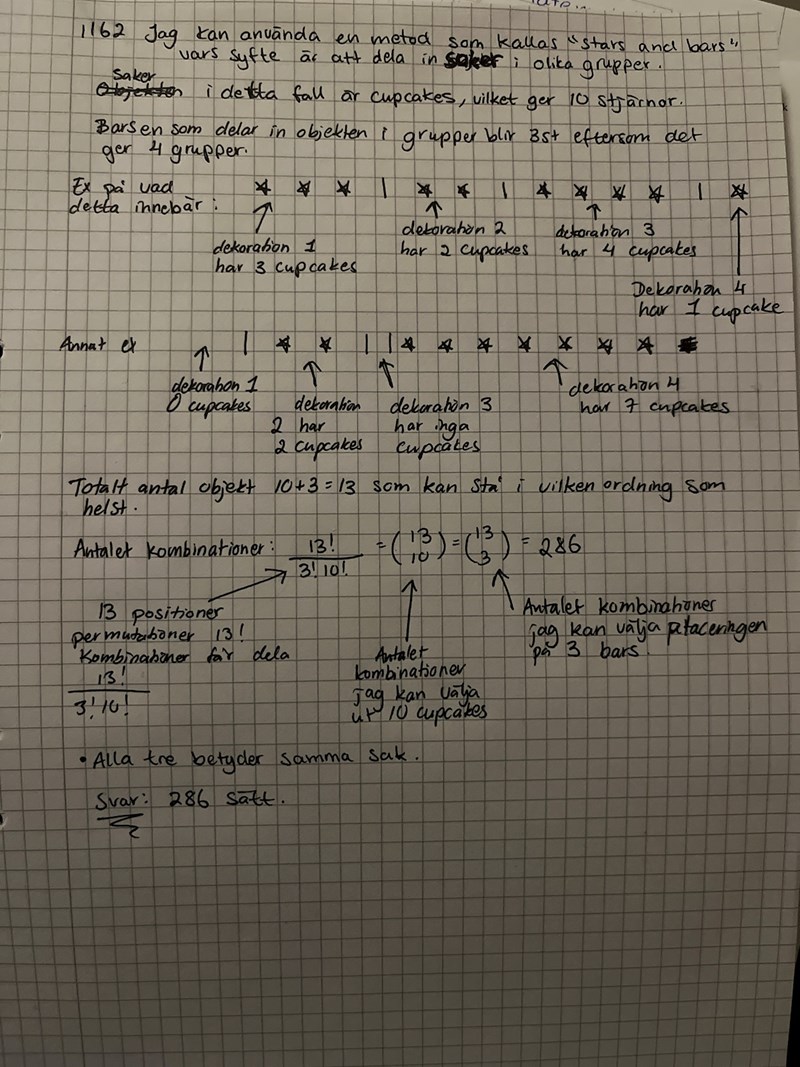 1162 Jag kan använda en metod som kallas "stars and bars"
vars syfte är att dela in saker i olika grupper.
Saker
i detta fall är cupcakes, vilket ger 10 stjärnor.
Barsen som delar in objekten i grupper blir 3st eftersom det
ger 4 grupper.
Ex på vad
detta innebär:
☆ ☆ ☆ | ☆ ☆ | ☆ ☆ ☆ ☆ | ☆
dekoration 1
har 3 cupcakes
dekoration 2
har 2 cupcakes
dekoration 3
har 4 cupcakes
Dekoration 4
har 1 cupcake
Annat ex
| ☆ ☆ | | ☆ ☆ ☆ ☆ ☆ ☆ ☆
dekoration 1
0 cupcakes
dekoration
2 har
2 cupcakes
dekoration 3
har inga
cupcakes
dekoration 4
har 7 cupcakes
Totalt antal objekt 10+3=13 som kan stå i vilken ordning som
helst.
Antalet kombinationer: 13! / 3! 10! = (13 10) = (13 3) = 286
13 positioner
permutationer 13!
Kombinationer får dela
13!
3! 10!
Antalet
kombinationer
jag kan välja
ut 10 cupcakes
Antalet kombinationer
jag kan välja placeringen
på 3 bars.
• Alla tre betyder samma sak.
Svar: 286 sätt.